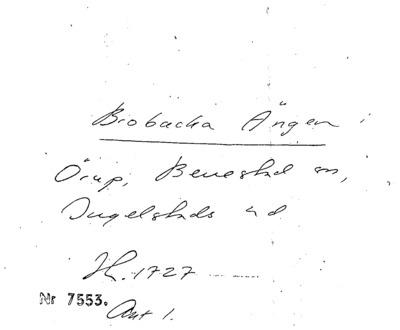 Brobacka Ängen
Örup, Benestad sn,
Ingelstads hd
H. 1727
Nr 7553.
Ant 1.